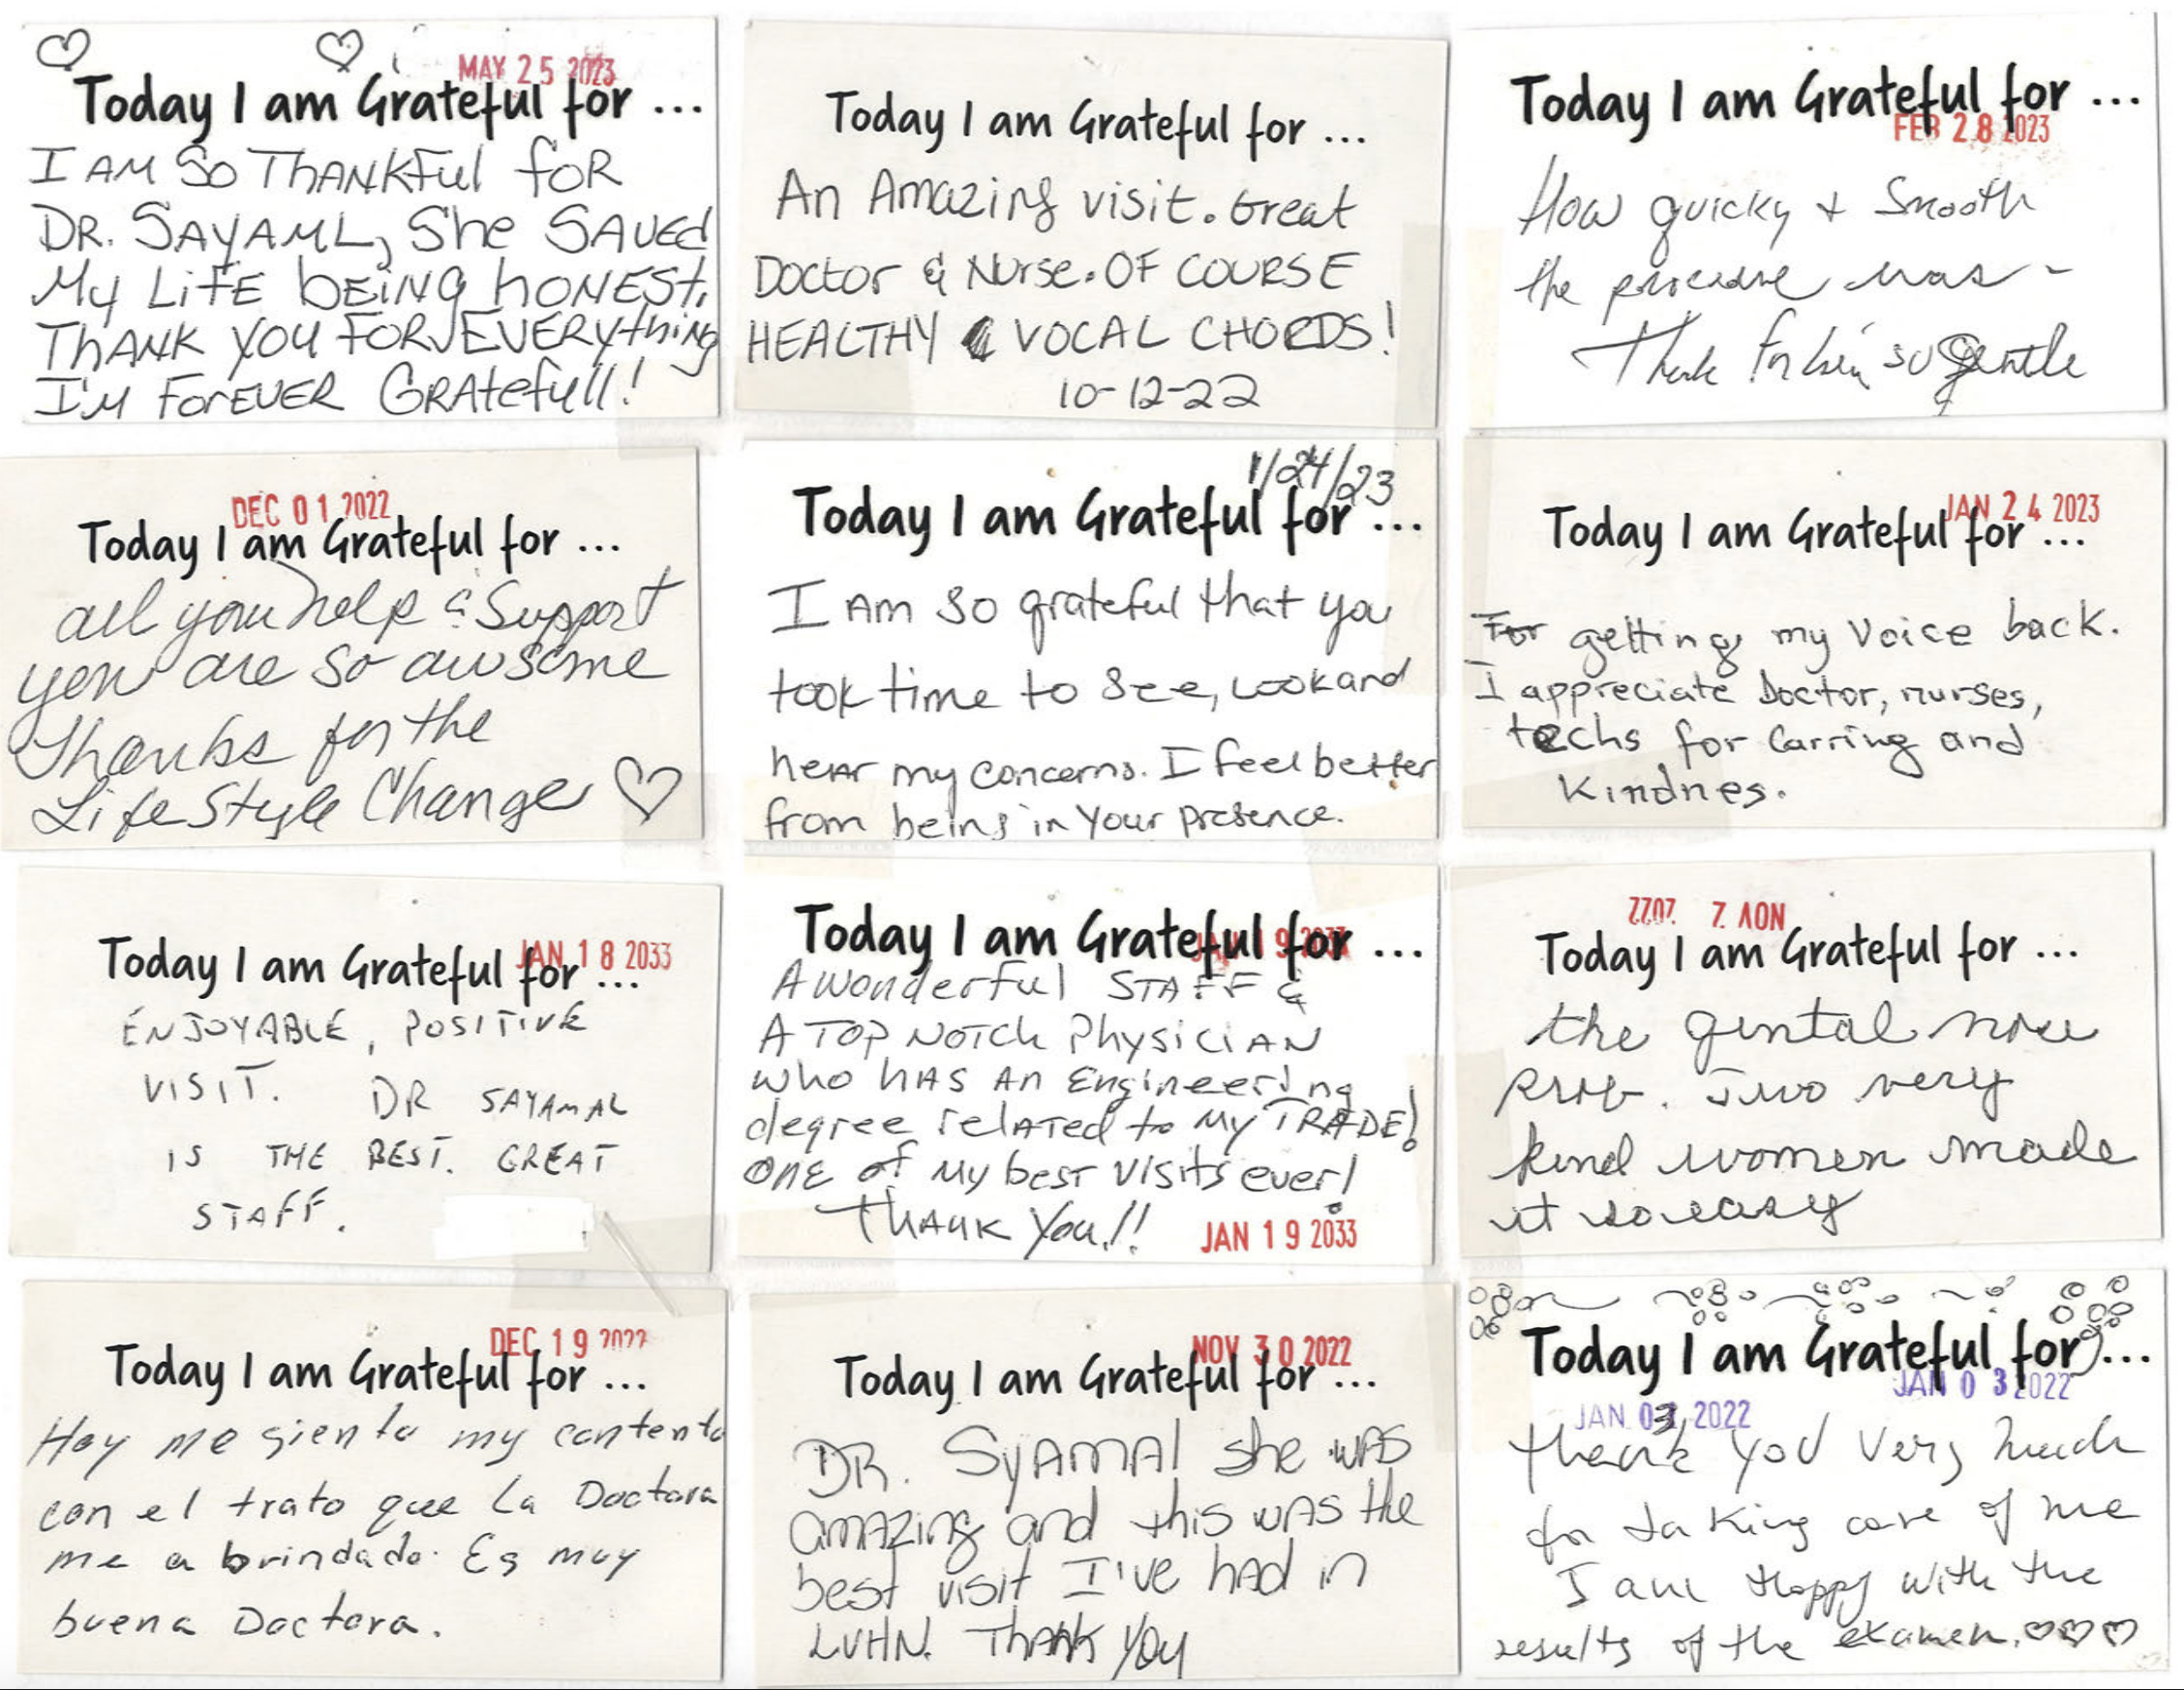 MAY 25 2023
Today I am Grateful for ...
I AM SO THANKFul foR
DR. SAYAML, She SAVEd
My LiFE bEiNG hONEST.
ThANK YOU FOR EVERYthiNG
I'M ForEVER GRAtefull!
Today I am Grateful for ...
An Amazing visit. Great
Doctor & Nurse. OF COURSE
HEALTHY VOCAL CHORDS!
10-12-22
Today I am Grateful for ...
FEB 28 2023
How quicky + Smooth
the was -
Thank for so gentle
DEC 01 2022
Today I am Grateful for ...
all your help & Support
you are so awsome
Thanks for the
Life Style Change
1/24/23
Today I am Grateful for ...
I AM so grateful that you
took time to See, Look and
hear my concerns. I feel better
from being in Your presence.
JAN 24 2023
Today I am Grateful for ...
For getting my Voice back.
I appreciate Doctor, nurses,
techs for Carring and
Kindnes.
JAN 18 2033
Today I am Grateful for ...
ENJOYABLE, POSITIVE
VISIT. DR SAYAMAL
IS THE BEST. GREAT
STAFF.
Today I am Grateful for ...
A Wonderful STAFF &
A TOP NOTCh PhysiciAN
who hAS An Engineering
degree relATed to My TRADE!
ONE of My best visits ever!
ThANK You!!
JAN 19 2033
NOV 2 2022
Today I am Grateful for ...
the gental nose
prob. Two very
kind women made
it so easy
DEC 19 2022
Today I am Grateful for ...
Hoy me siento my contento
con el trato que La Doctora
me a brindado. Es muy
buena Doctora.
NOV 30 2022
Today I am Grateful for ...
DR. SyAMAl she wAS
amAzing and this wAS the
best visit I've hAd in
LVHN. ThANK YOU
Today I am Grateful for ...
JAN 03 2022
JAN 03 2022
thank you Very much
for taking care of me
I am Happy with the
results of the examen.